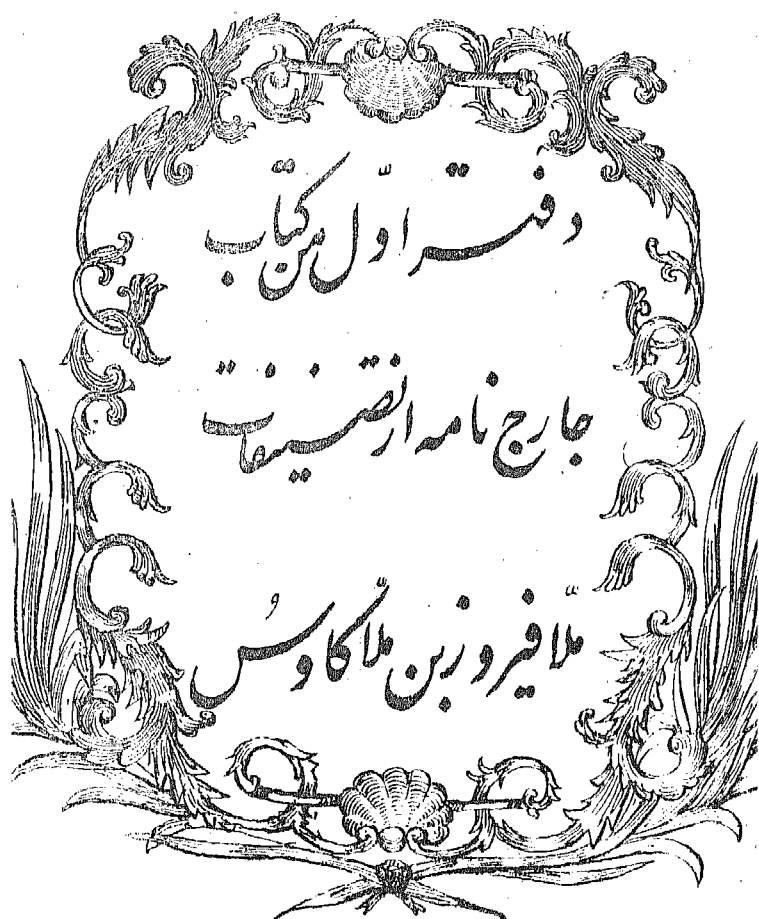 دفتر اوّل من كتاب
جارج نامه از تصنیفات
ملّا فیروز بن ملّا کاوُس